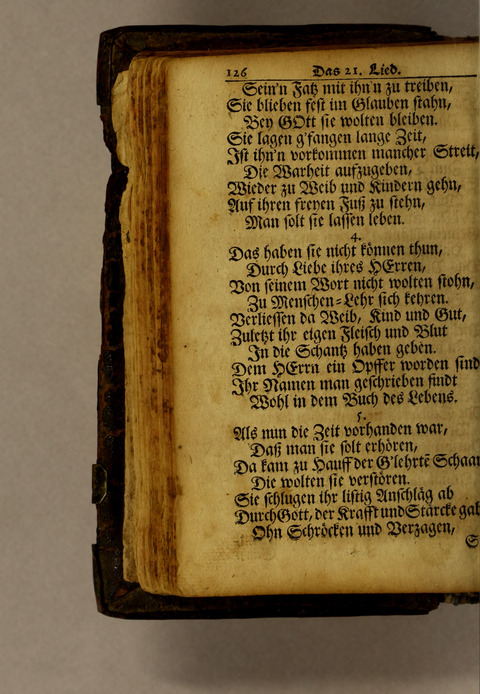 126 Das 21. Lied.
Sein'n Fatz mit ihn'n zu treiben,
Sie blieben fest im Glauben stahn,
Bey GOtt sie wolten bleiben.
Sie lagen g'fangen lange Zeit,
Ist ihn'n vorkommen mancher Streit,
Die Warheit aufzugeben,
Wieder zu Weib und Kindern gehn,
Auf ihren freyen Fuß zu stehn,
Man solt sie lassen leben.
4.
Das haben sie nicht können thun,
Durch Liebe ihres HErren,
Von seinem Wort nicht wolten stohn,
Zu Menschen-Lehr sich kehren.
Verliessen da Weib, Kind und Gut,
Zuletzt ihr eigen Fleisch und Blut
In die Schantz haben geben.
Dem HErrn ein Opffer worden sind
Ihr Namen man geschrieben findt
Wohl in dem Buch des Lebens.
5.
Als nun die Zeit vorhanden war,
Daß man sie solt erhören,
Da kam zu Hauff der G'lehrtē Schaar
Die wolten sie verstören.
Sie schlugen ihr listig Anschläg ab
Durch Gott, der Krafft und Stärcke gab
Ohn Schröcken und Verzagen,